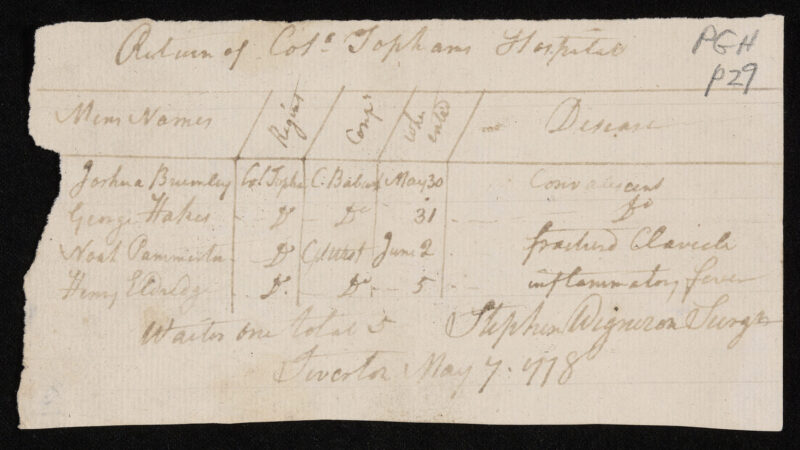 Return of Colº Tophams Hospital
PGH
P29
Mens Names Regint Comp' whe entrd Disease
Joshua Brumley Col Topha C. Babcock May 30 Convalescent
George Hakes Dº Dº 31 Dº
Noah Dº June 2 fracturd Clavicle
Henry Eldredge Dº Dº 5 inflammatory fever
Waiter one total 5 Stephen Wigneron Surgn
Tiverton May 7. 1778